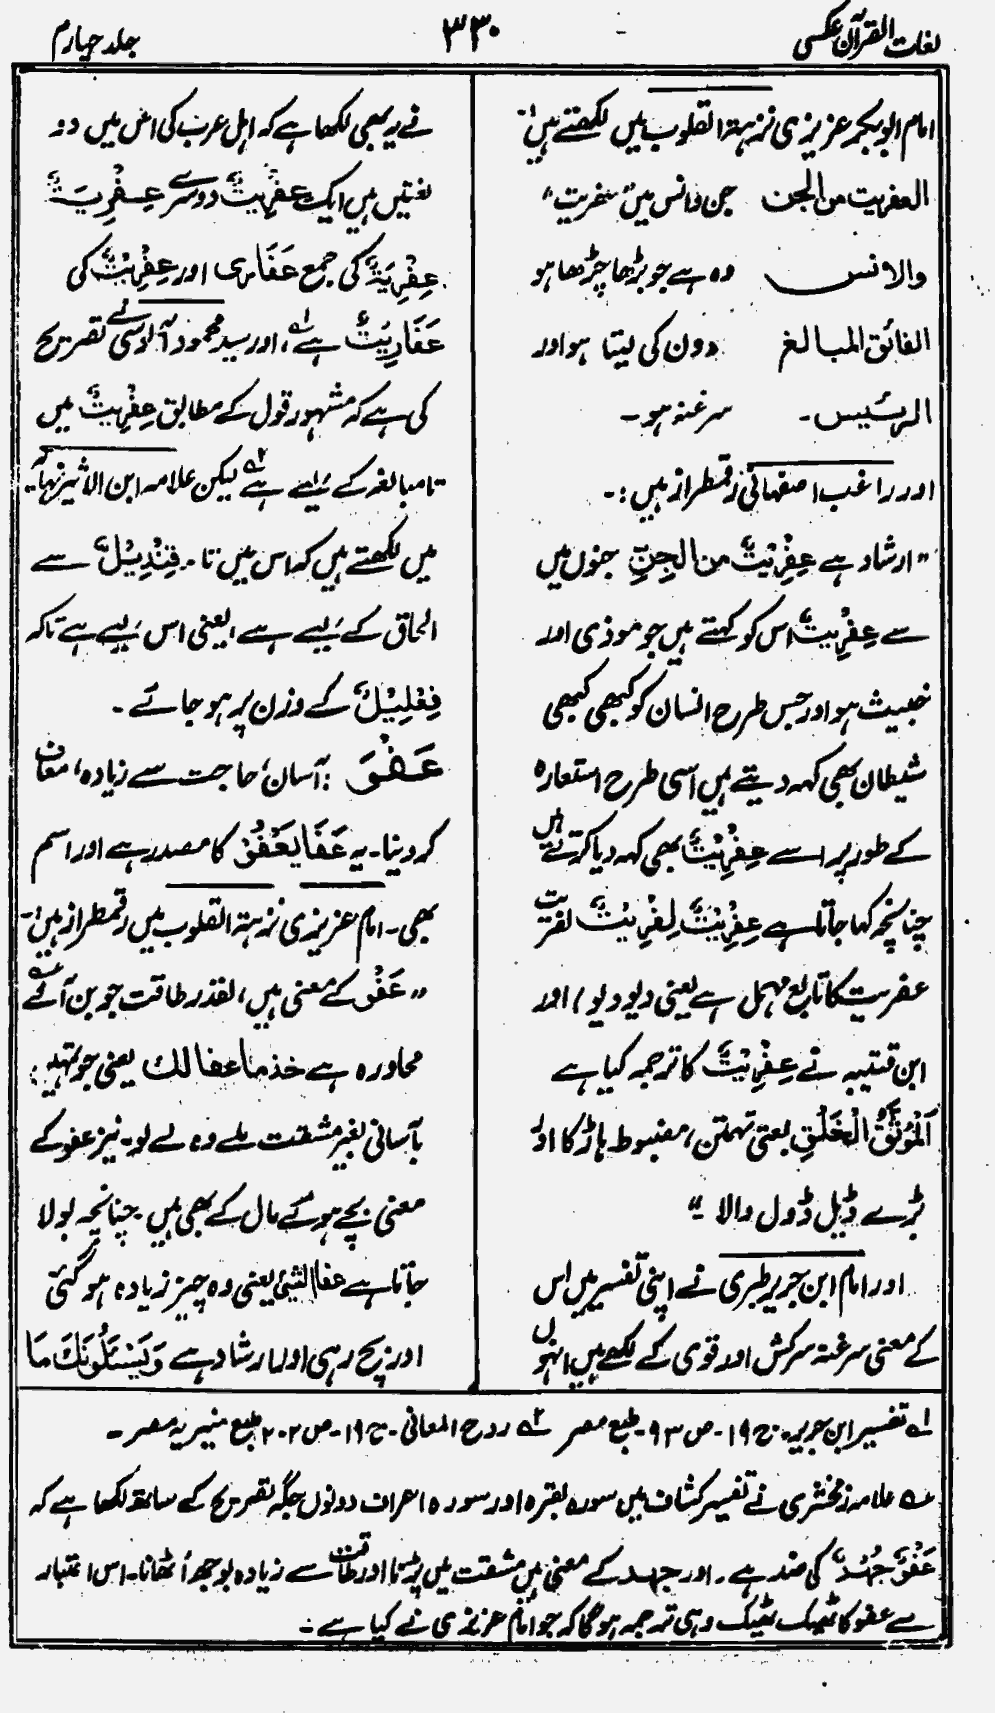 لغات القرآن عکسی
۳۳۰
جلد چہارم
امام ابوبکر عزیزی نزہۃ القلوب میں لکھتے ہیں:-
العفریت من الجن جن و انس میں عفریت"
والانس وہ ہے جو بڑھا چڑھا ہو
الفائق المبالغ دون کی لیتا ہو اور
الرئیس۔ سرغنہ ہو۔
اور راغب اصفہانی رقمطراز ہیں:۔
"ارشاد ہے عِفْرِیْتٌ من الجِنِّ جنوں میں
سے عِفْرِیتٌ اس کو کہتے ہیں جو موذی اور
خبیث ہو اور جس طرح انسان کو کبھی کبھی
شیطان بھی کہہ دیتے ہیں اسی طرح استعارہ
کے طور پر اسے عِفْرِیْتٌ بھی کہہ دیا کرتے ہیں
چنانچہ کہا جاتا ہے عِفْرِیْتٌ نِفْرِیْتٌ نفریت
عفریت کا تابع مہمل ہے یعنی دیو ویو) اور
ابن قتیبہ نے عِفْرِیْتٌ کا ترجمہ کیا ہے
اَلْمُوَثَّقُ الْخَلْقِ یعنی تہمتن، مضبوط ہاڑ کا اور
بڑے ڈیل ڈول والا۔"
اور امام ابن جریر طبری نے اپنی تفسیر میں اس
کے معنی سرغنہ سرکش اور قوی کے لکھے ہیں انہوں
نے یہ بھی لکھا ہے کہ اہل عرب کی اس میں دو
لغتیں ہیں ایک عِفْرِیتٌ دوسرے عِفْرِیَۃٌ
عِفْرِیَۃٌ کی جمع عَفَاری اور عِفْرِیْتٌ کی
عَفَارِیْتُ ہے ؂۱، اور سید محمود آلوسی نے تصریح
کی ہے کہ مشہور قول کے مطابق عِفْرِیتٌ میں
تا مبالغہ کے لیے ہے ؂۲ لیکن علامہ ابن الاثیر نہایہ
میں لکھتے ہیں کہ اس میں تا۔ قِنْدِیْلٌ سے
الحاق کے لیے ہے، یعنی اس لیے ہے تاکہ
فِعْلِیْلٌ کے وزن پر ہو جائے۔
عَفْوَ : آسان، حاجت سے زیادہ، معاف
کر دینا۔ یہ عَفَا یَعْفُوْ کا مصدر ہے اور اسم
بھی۔ امام عزیزی نزہۃ القلوب میں رقمطراز ہیں:-
"عَفْو کے معنی ہیں، بقدر طاقت جو بن آئے ؂
محاورہ ہے خذ ما عفا لك یعنی جو تمہیں
بآسانی بغیر مشقت ملے وہ لے لو۔ نیز عفو کے
معنی بچے ہوئے مال کے بھی ہیں۔ چنانچہ بولا
جاتا ہے عفا الشئ یعنی وہ چیز زیادہ ہو گئی
اور بچ رہی اور ارشاد ہے وَیَسْئَلُوْنَكَ مَا
؂۱ تفسیر ابن جریر۔ ج ۱۹۔ ص ۹۳۔ طبع مصر ؂۲ روح المعانی۔ ج ۱۹۔ ص ۲۰۲ طبع منیریہ مصر۔
؂ علامہ زمخشری نے تفسیر کشاف میں سورہ بقرہ اور سورہ اعراف دونوں جگہ تصریح کے ساتھ لکھا ہے کہ
عَفْوٌ جُہْدٌ کی ضد ہے۔ اور جہد کے معنی ہیں مشقت میں پڑنا اور طاقت سے زیادہ بوجھ اُٹھانا۔ اس اعتبار
سے عفو کا ٹھیک ٹھیک وہی ترجمہ ہوگا کہ جو امام عزیزی نے کیا ہے:-